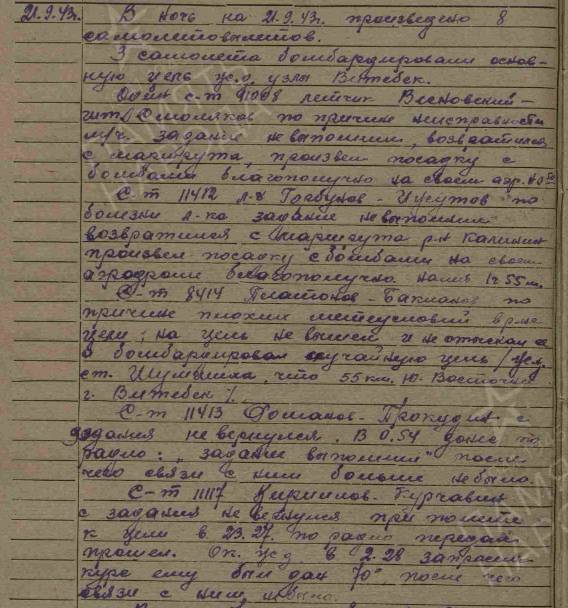 21.9.43г. В ночь на 21.9.43г. произведено 8
самолетовылетов.
3 самолета бомбардировали основ-
ную цель ж.д. узлы Витебск.
Один с-т 91008 летчик Висковский -
шт. Смоляков по причине неисправности
муч. задание невыполнил, возвратился
с маршрута, произвел посадку с
бомбами благополучно на своем аэр.
С-т 11412 л-к Горбунов - по
болезни л-ка задание невыполнил
возвратился с маршрута р-н Калинин
произвел посадку с бомбами на своем
аэродроме благополучно налет 1ч 55м.
С-т 8414 Платонов - Бакланов по
причине плохих метеусловий в р-не
цели; на цель не вышел и не отыскал ее
бомбардировал случайную цель /жел.
ст. Шумилина, что 55 км. Ю-Восточн.
г. Витебск/.
С-т 11413 Фоманов - Прокудин с
задания не вернулся. В 0.54 донес по
радио: "задание выполнил" после
чего связи с ним больше небыло.
С-т 11117 Кириллов - Гурчавин
с задания не вернулся при полете
к цели в 23.27. по радио передал
прошел. Ок. ж.д в 2.28 запросил
курс ему был дан 70° после чего
связи с ним не было.